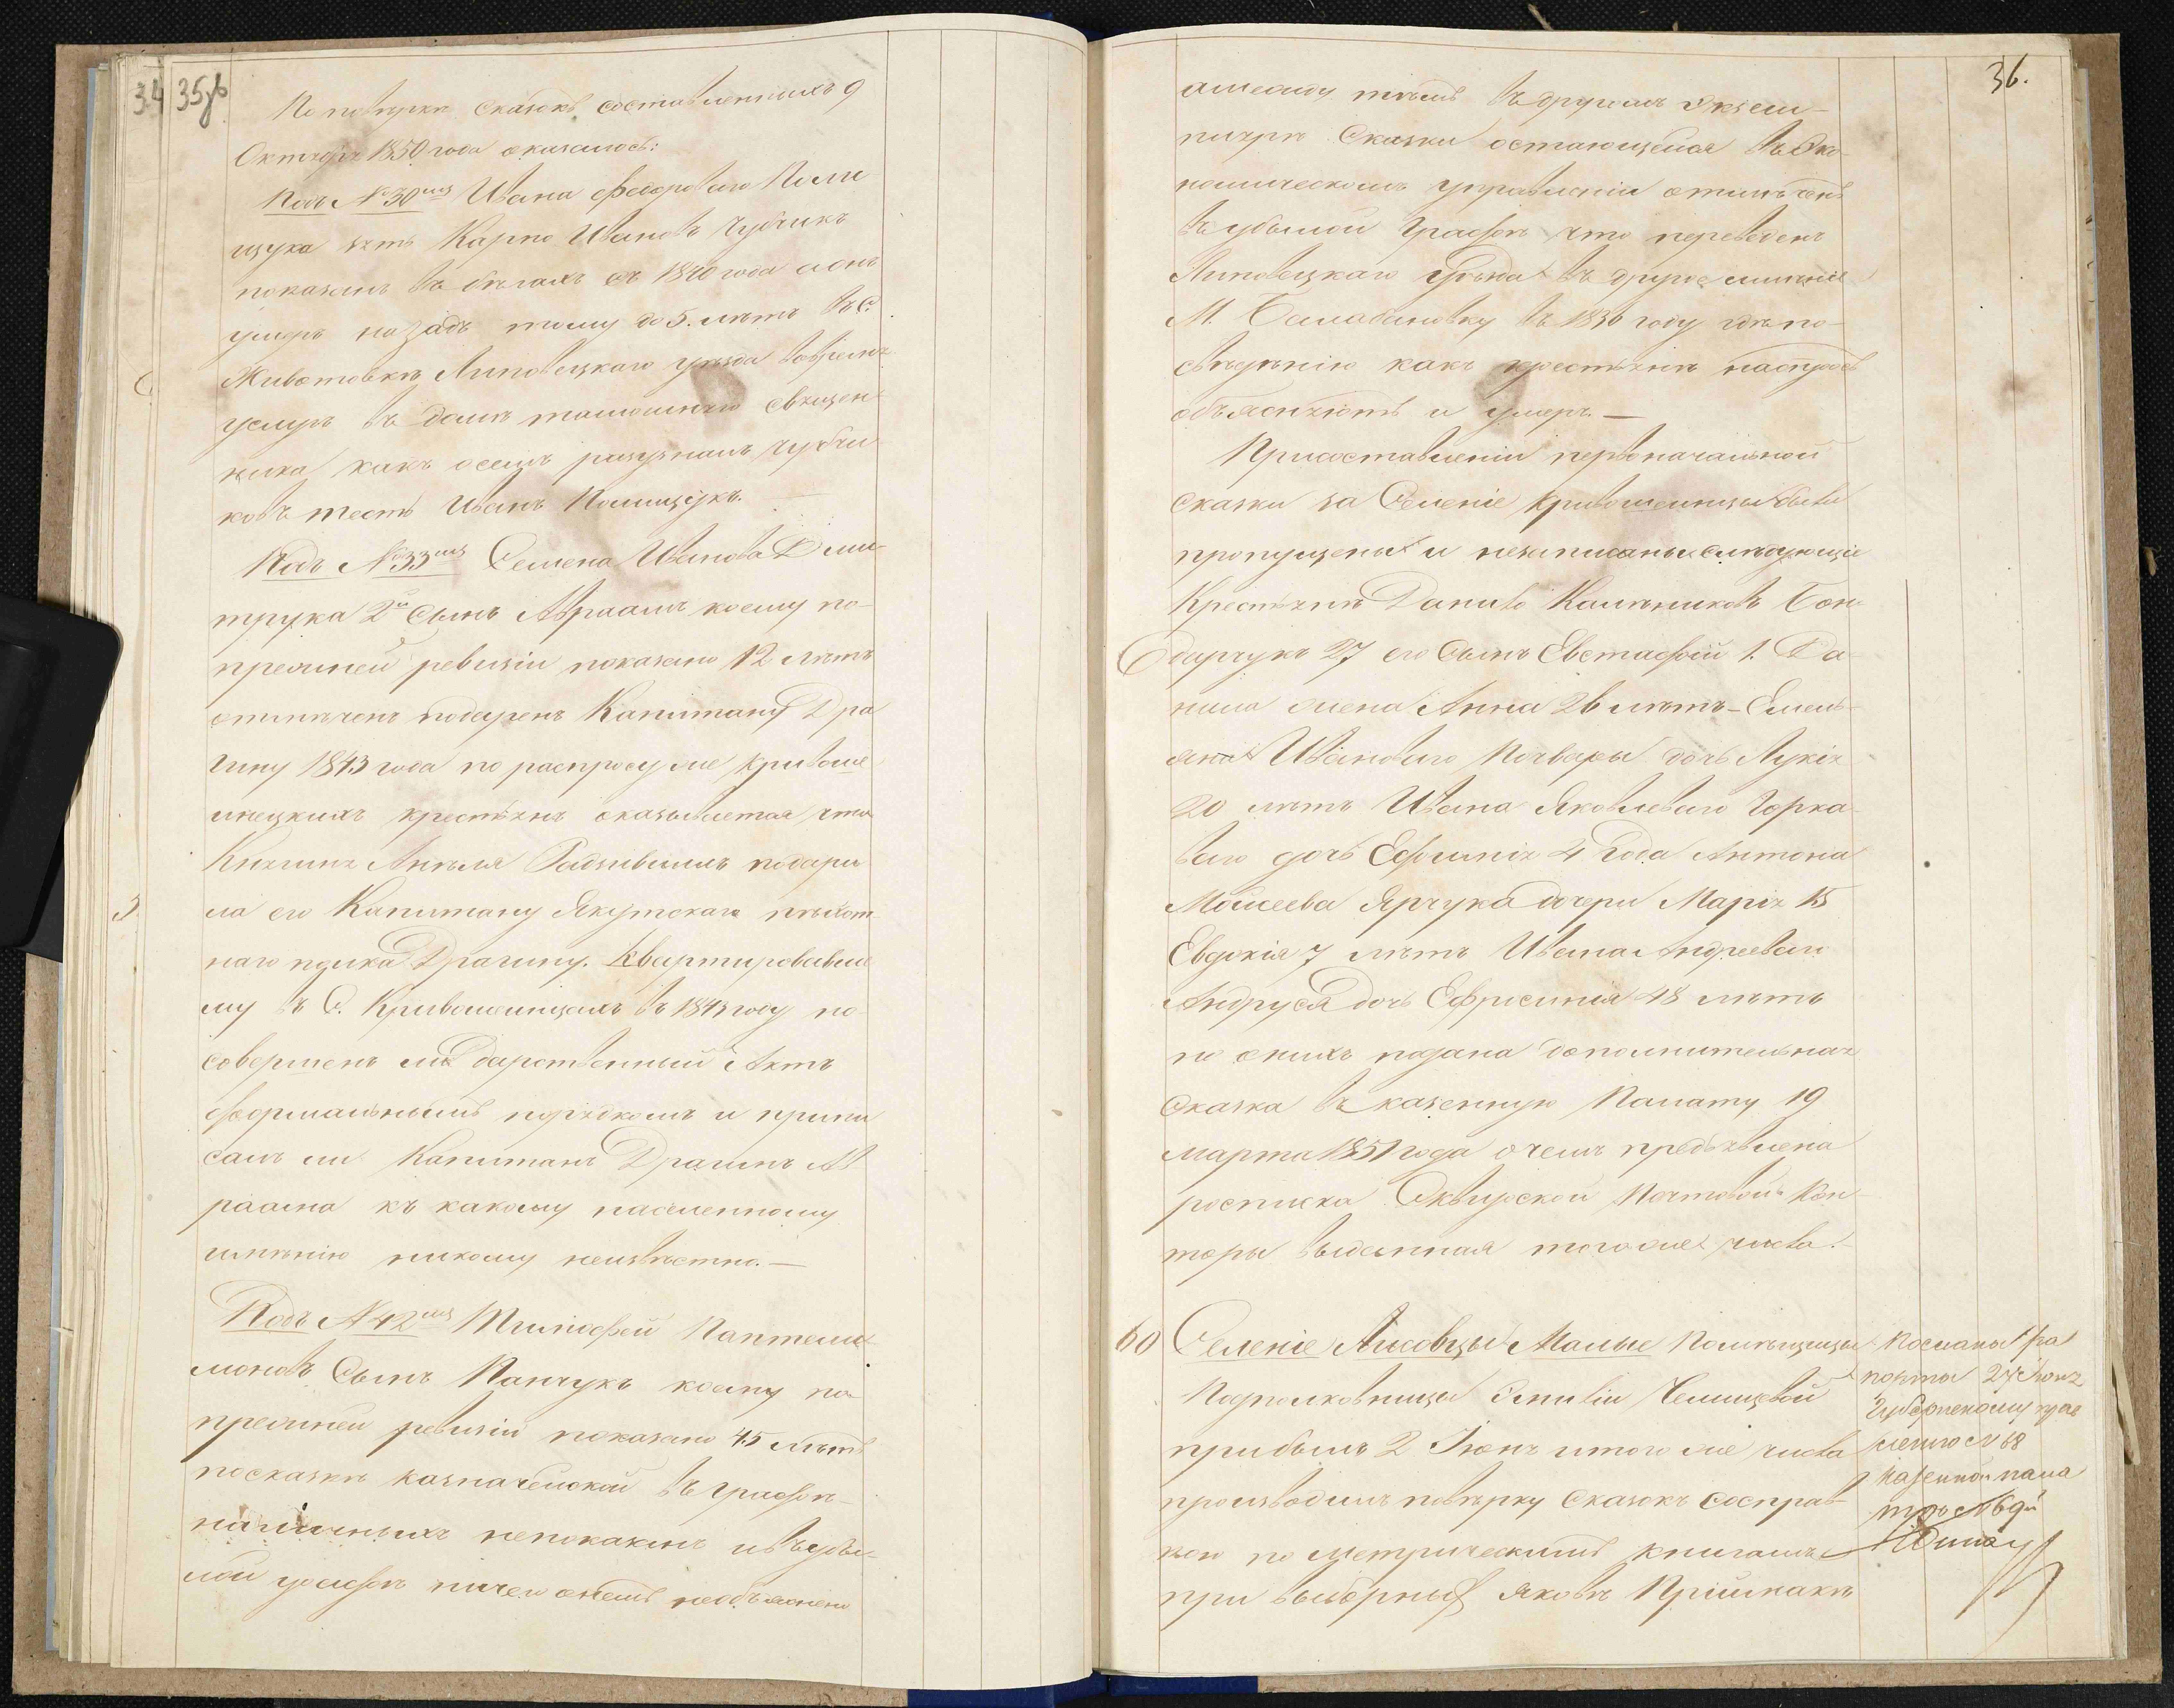 34 35об
По повѣркѣ сказокъ составленныхъ 9
Октября 1850 года оказалось:
Подъ №30мъ Ивана Федорового Поли
щука зять Карпо Ивановъ Чубчикъ
показанъ въ бѣгахъ съ 1840 года а онъ
умеръ назадъ тому до 5. лѣтъ въ С.
Животовкѣ Липовецкаго уѣзда
услугъ въ домѣ тамошняго священ
ника какъ о семъ разузналъ Чубчи
ковъ тесть Иванъ Полищукъ. —
Подъ №33мъ Семена Иванова Дми
трука 2й сынъ Авраамъ коему по
прежней ревизіи показано 12 лѣтъ
отмѣченъ подаренъ Капитану Дра
гину 1843 года по распросу же Кривоше
инецкихъ крестьянъ оказывается что
Княгиня Анѣля Радзивилъ подари
ла его Капитану Якутскаго пѣхот
наго полка Драгину. Квартировавше
му въ С. Кривошеинцахъ въ 1843 году но
совершенъ ли Дарственный Актъ
формальнымъ порядкомъ и припи
салъ ли Капитанъ Драгинъ Ав
раама къ какому населенному
имѣнію никому неизвѣстно. —
Подъ №42мъ Тимофей Пантели
моновъ сынъ Панчукъ коему по
прежней ревизіи показано 45 лѣтъ
по сказкѣ казначейской въ графѣ
наличныхъ непоказанъ и въ убы
лой графѣ ничего о немъ необъяснено
36.
а между тѣмъ въ другомъ экзем
плярѣ Сказки остающейся въ Эко
номическомъ управленіи отмѣченъ
въ убылой графѣ что переведенъ
Липовецкаго уѣзда въ другое имѣніе
М. Балабановку въ 1836 году гдѣ по
свѣдѣнію какъ крестьяне
объясняютъ и умеръ. —
При составленіи первоначальной
сказки за Селеніе Кривошеинцы были
пропущены и незаписаны слѣдующіе
Крестьяне Данило Калѣниковъ Бон
дарчукъ 27 его сынъ Евстафій 1. Да
нила жена Анна 26 лѣтъ — Емель
яна Иванового Почвары дочь Лукія
20 лѣтъ Ивана Яковлевого Горка
вого дочь Ефимія 4 Года Антона
Мойсеева Ярчука дочери Марія 15
Евдокія 7 лѣтъ Ивана Андреевого
Андруся дочь Ефросинія 48 лѣтъ
по оныхъ подана дополнительная
Сказка въ казенную Палату 19
марта 1851 года о чемъ предъявлена
росписка Сквирской Почтовой Кон
торы выданная того же числа. —
60 Селеніе Лисовцы Малые Помѣщицы
Подполковницы Эмиліи Челищевой
прибылъ 2 Іюня и того же числа
производилъ повѣрку Сказокъ со справ
кою по метрическимъ книгамъ
при выборныхъ Яковѣ Пріймакѣ
Посланы ра
порты 24 Іюня
Губернскому прав
ленію № 68
казенной пала
тѣ № 69й